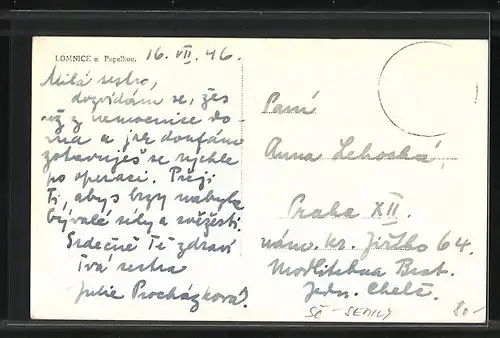 LOMNICE n Popelkou.
16. VII. 46.
Milá sestro,
dozvídám se, žes
už z nemocnice do-
ma a jak doufám
zotavuješ se rychle
po operaci. Přeji
Ti, abys brzy nabyla
bývalé síly a svěžesti.
Srdečně Tě zdraví
Tvá sestra
Julie Procházková.
Paní
Anna
Praha XII.
nám. kr. Jiřího 64.
Modlitebna Brat.
Jedn. Chelč.
SČ - SEMILY
80-